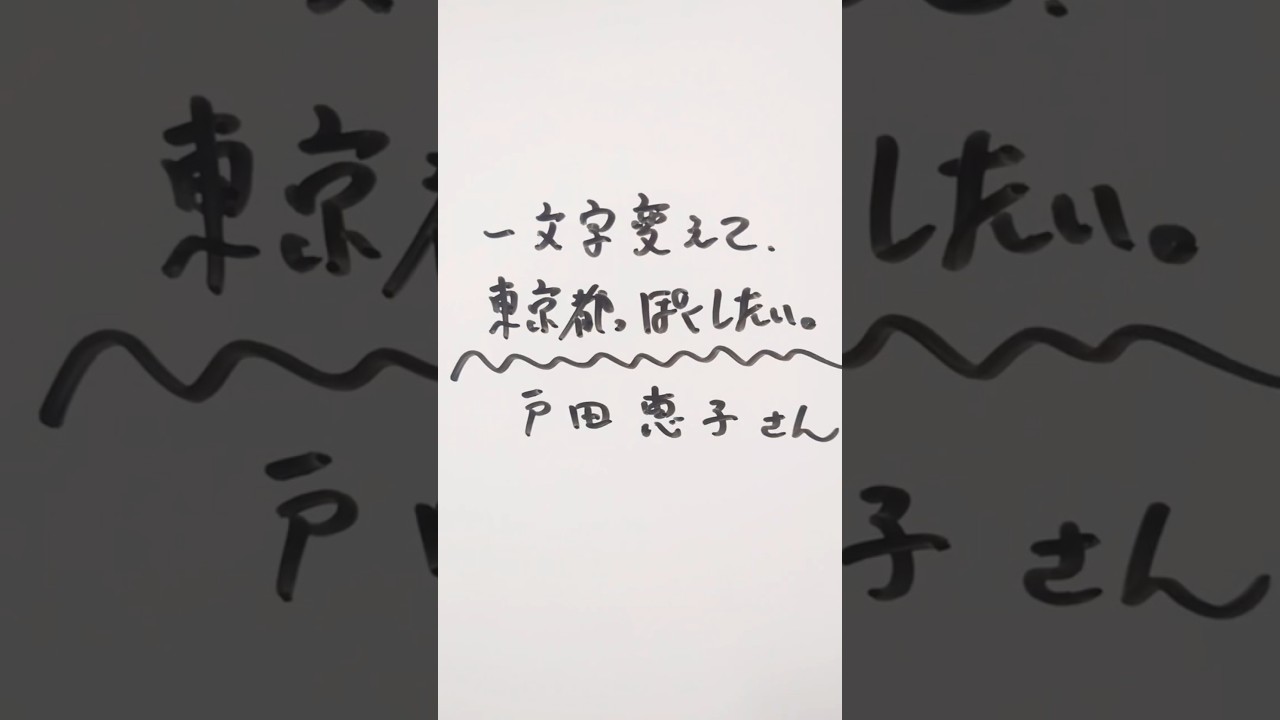 一文字変えて、
東京都っぽくしたい。
戸田恵子さん